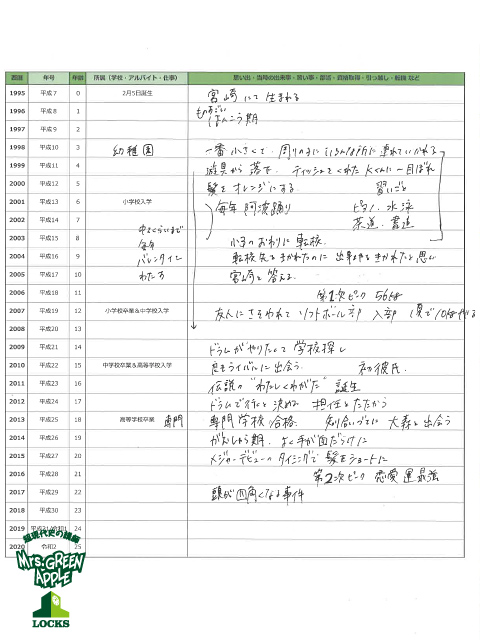 西暦 年号 年齢 所属（学校・アルバイト・仕事） 思い出・当時の出来事・習い事・部活・資格取得・引っ越し・転機 など
1995 平成7 0 2月5日誕生 宮崎にて生まれる
1996 平成8 1 ものすごい
はんこう期
1997 平成9 2
1998 平成10 3 幼稚園 一番小さくて、周りの子にいろんな所に連れていかれる
1999 平成11 4 遊具から落下、ティッシュをくれたKくんに一目ぼれ
2000 平成12 5 髪をオレンジにする 習いごと
2001 平成13 6 小学校入学 毎年 阿波踊り ピアノ、水泳
2002 平成14 7 茶道、書道
2003 平成15 8 毎年 小3のおわりに転校
2004 平成16 9 バレンタイン 転校先をきかれたのに出身地をきかれたと思い
2005 平成17 10 わたす 宮崎と答える
2006 平成18 11 第1次ピーク
2007 平成19 12 小学校卒業&中学校入学 友人にさそわれてソフトボール部 入部
2008 平成20 13
2009 平成21 14 ドラムがやりたくて学校探し
2010 平成22 15 中学校卒業&高等学校入学 良きライバルに出会う 初の彼氏
2011 平成23 16 伝説の“わたしくわがた” 誕生
2012 平成24 17 ドラムで行くと決める 担任とたたかう
2013 平成25 18 高等学校卒業 専門 専門学校合格 知り合いづてに大森と出会う
2014 平成26 19 がむしゃら期、よく手が血だらけに
2015 平成27 20 メジャーデビューのタイミングで髪をショートに
2016 平成28 21 第2次ピーク 恋愛運最強
2017 平成29 22 頭が四角くなる事件
2018 平成30 23
2019 平成31/令和1 24
2020 令和2 25
超現代史の講師
Mrs. GREEN APPLE
LOCKS